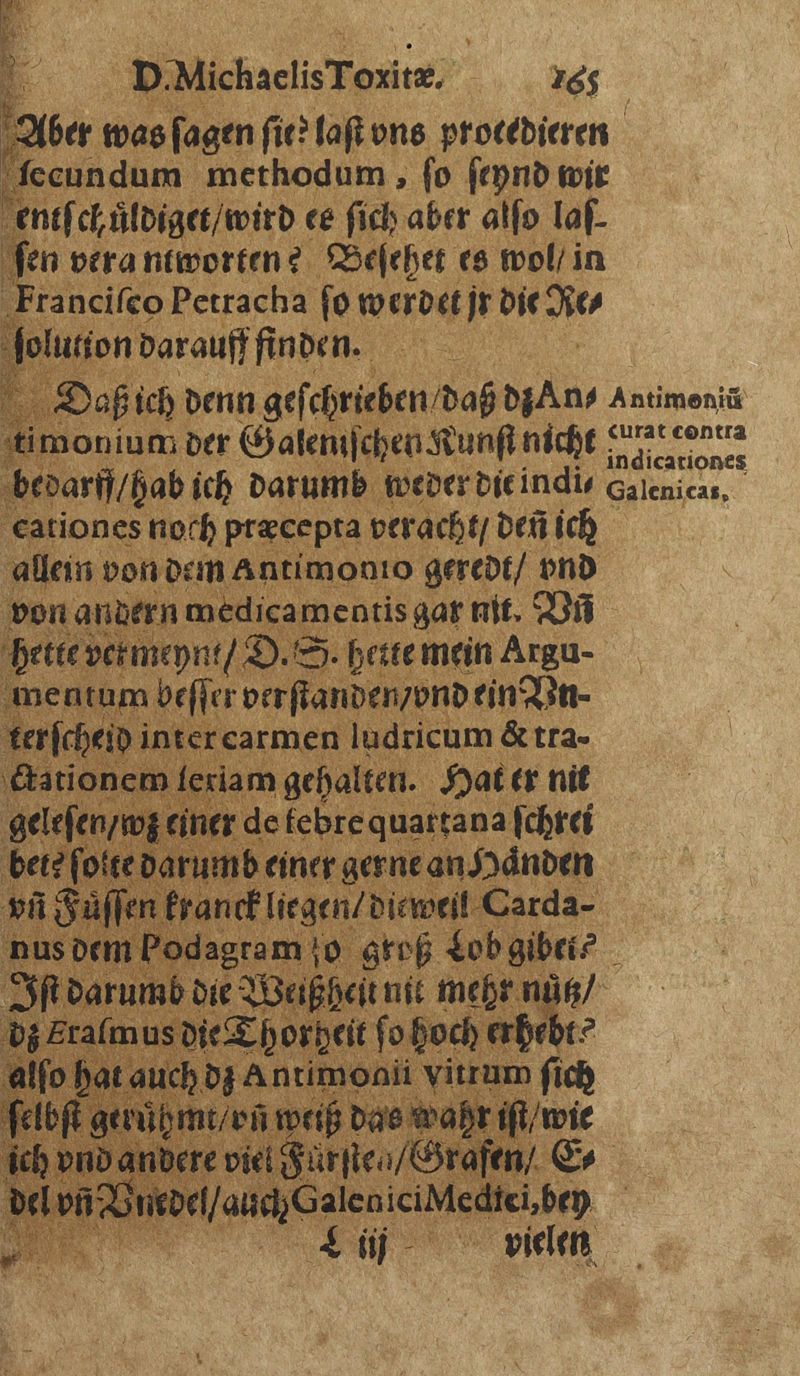 D. Michaelis Toxitæ. 165
Aber was sagen sie? last vns procedieren
secundum methodum, so seynd wir
entschůldiget/wird es sich aber also las-
sen verantworten? Besehet es wol/ in
Francisco Petracha so werdet jr die Re-
solution darauff finden.
Daß ich denn geschrieben/daß dz An-
timonium der Galenischen Kunst nicht
bedarff/hab ich darumb weder die indi-
cationes noch præcepta veracht/ deñ ich
allein von dem Antimonio geredt/ vnd
von andern medicamentis gar nit. Vñ
hette vermeynt/ D. S. hette mein Argu-
mentum besser verstanden/vnd ein Vn-
terscheid inter carmen ludricum & tra-
ctationem seriam gehalten. Hat er nit
gelesen/wz einer de febre quartana schrei
bet? solte darumb einer gerne an Hånden
vñ Füssen kranck liegen/dieweil Carda-
nus dem Podagram so groß Lob gibet?
Ist darumb die Weißheit nit mehr nütz/
dz Erasmus die Thorheit so hoch erhebt?
also hat auch dz Antimonii vitrum sich
selbst gerühmt/vñ weiß das wahr ist/wie
ich vnd andere viel Fürsten/Grafen/ E-
del vñ Vnedel/auch Galenici Medici, bey
L iij vielen
Antimoniū
curat contra
indicationes
Galenicas.